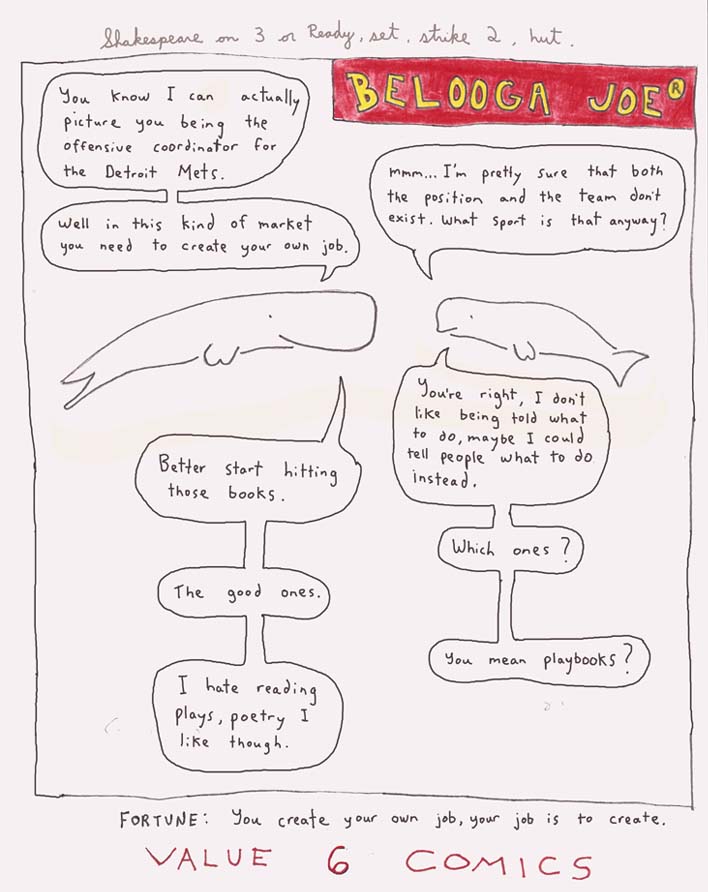 Shakespeare on 3 or Ready, set, strike 2, hut.
BELOOGA JOE®
You know I can actually
picture you being the
offensive coordinator for
the Detroit Mets.
mmm... I'm pretty sure that both
the position and the team don't
exist. What sport is that anyway?
Well in this kind of market
you need to create your own job.
You're right, I don't
like being told what
to do, maybe I could
tell people what to do
instead.
Better start hitting
those books.
Which ones?
The good ones.
You mean playbooks?
I hate reading
plays, poetry I
like though.
FORTUNE: You create your own job, your job is to create.
VALUE 6 COMICS